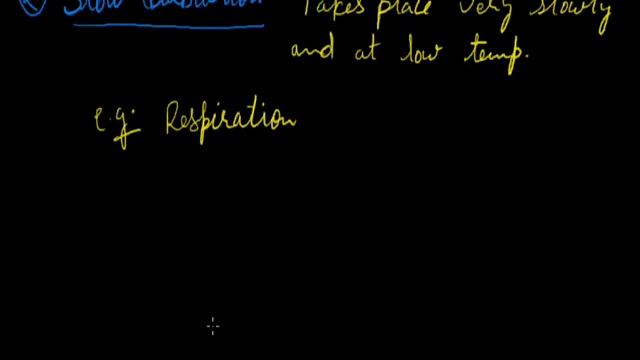 Slow Combustion Takes place very slowly
and at low temp.
e.g: Respiration